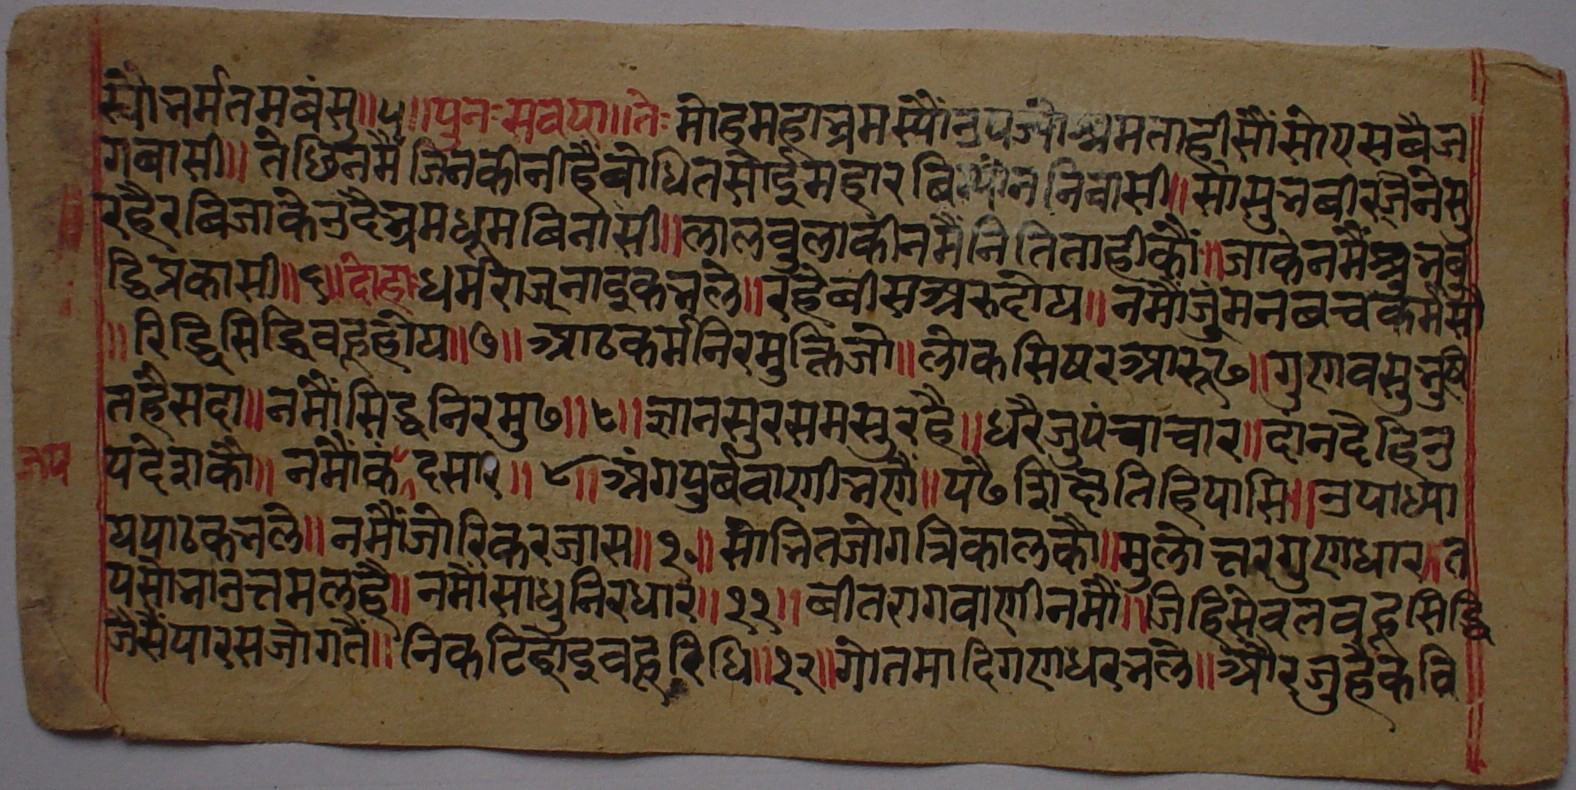 स्यौ नर्मतमबंसु॥५॥पुनः सवया॥तेः मोहमहान्नमस्यौं उपज्यो भ्रमताही सौं सोए सबै ज
गबासी॥ ते छिनमै जिन कीनी है बोधित सोई महा रबि निवासी॥ सो सुत्रबी रजिनेसु
रहै रबि जाके उदै भ्रमधुम बिनासी॥लाल वुलाकी नमै निति ताही कौं॥जाके नमैं बु
द्धि प्रकासी॥६॥दोहा॥धर्मराज नादुक नलै॥रहै बीस अरु दोय॥ नमौं जु मन बच कर्म सौ
॥रिद्धि सिद्धि वहु होय॥७॥ आठ कर्म निरमुक्ति जो॥लोक सिषर आरूढ॥गुण वसु
त है सदा॥ नमौं सिद्ध निरमुढ॥८॥ ज्ञान सुर सम सुर है॥ धरै जु पंचाचार॥ दांन दे हि उ
पदेश कौ॥ नमौं क दसार॥ ९॥ अंग पुर्ब वाणी नणै॥पढै शिष्य तिहि पासि॥उपाध्या
य पाठक नले॥ नमौं जोरि कर जास॥१०॥ सोनित जोग त्रिकाल कौ॥मुलोत्तर गुण धार त
प सोना उत्तम लहै॥ नमौं साधु निरधार॥११॥ बीतराग वाणी नमौं॥जिहि सेवत वहु सिद्धि
जैसैं पारस जोग तै॥ निकटि होइ वहु रिधि॥१२॥गोतमादि गणधर नले॥ और जु है कवि